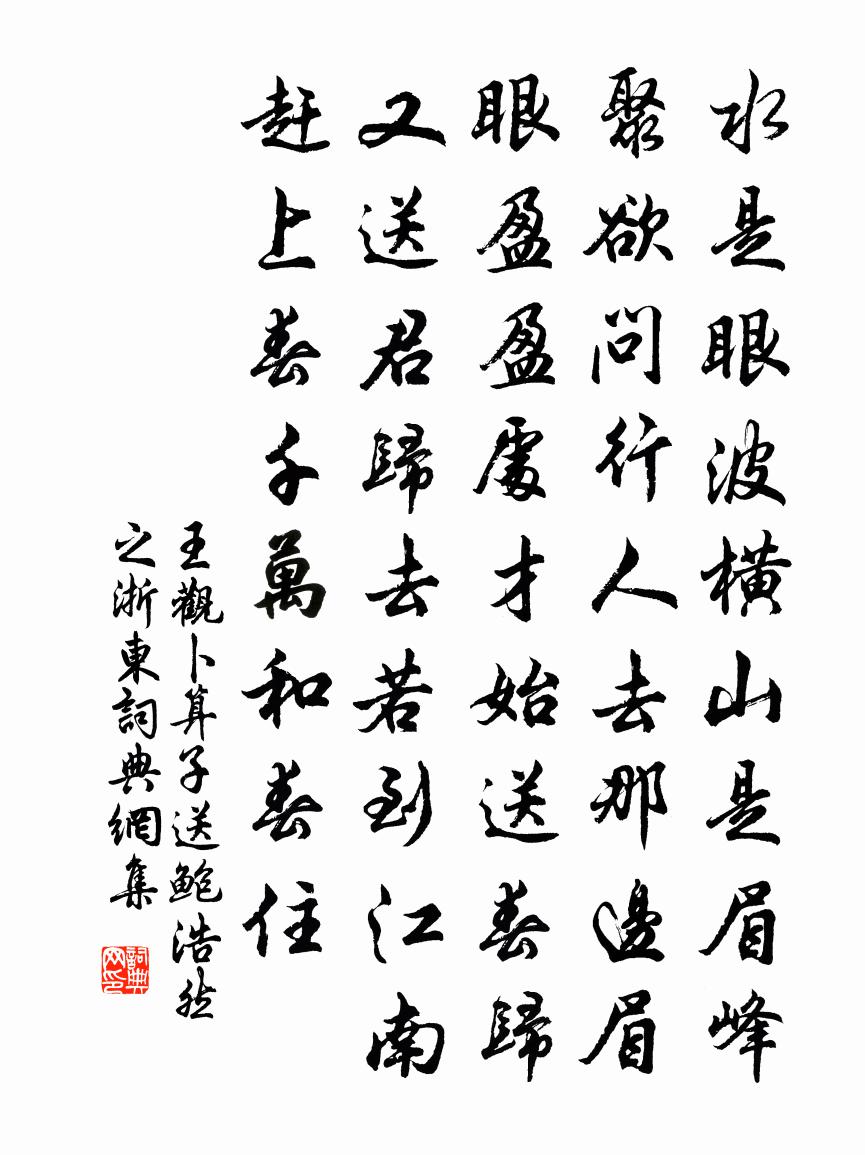 水是眼波橫山是眉峰
聚欲問行人去那邊眉
眼盈盈處才始送春歸
又送君歸去若到江南
赶上春千萬和春住
王觀卜算子送鮑浩然
之浙東詞典網集
詞典网印